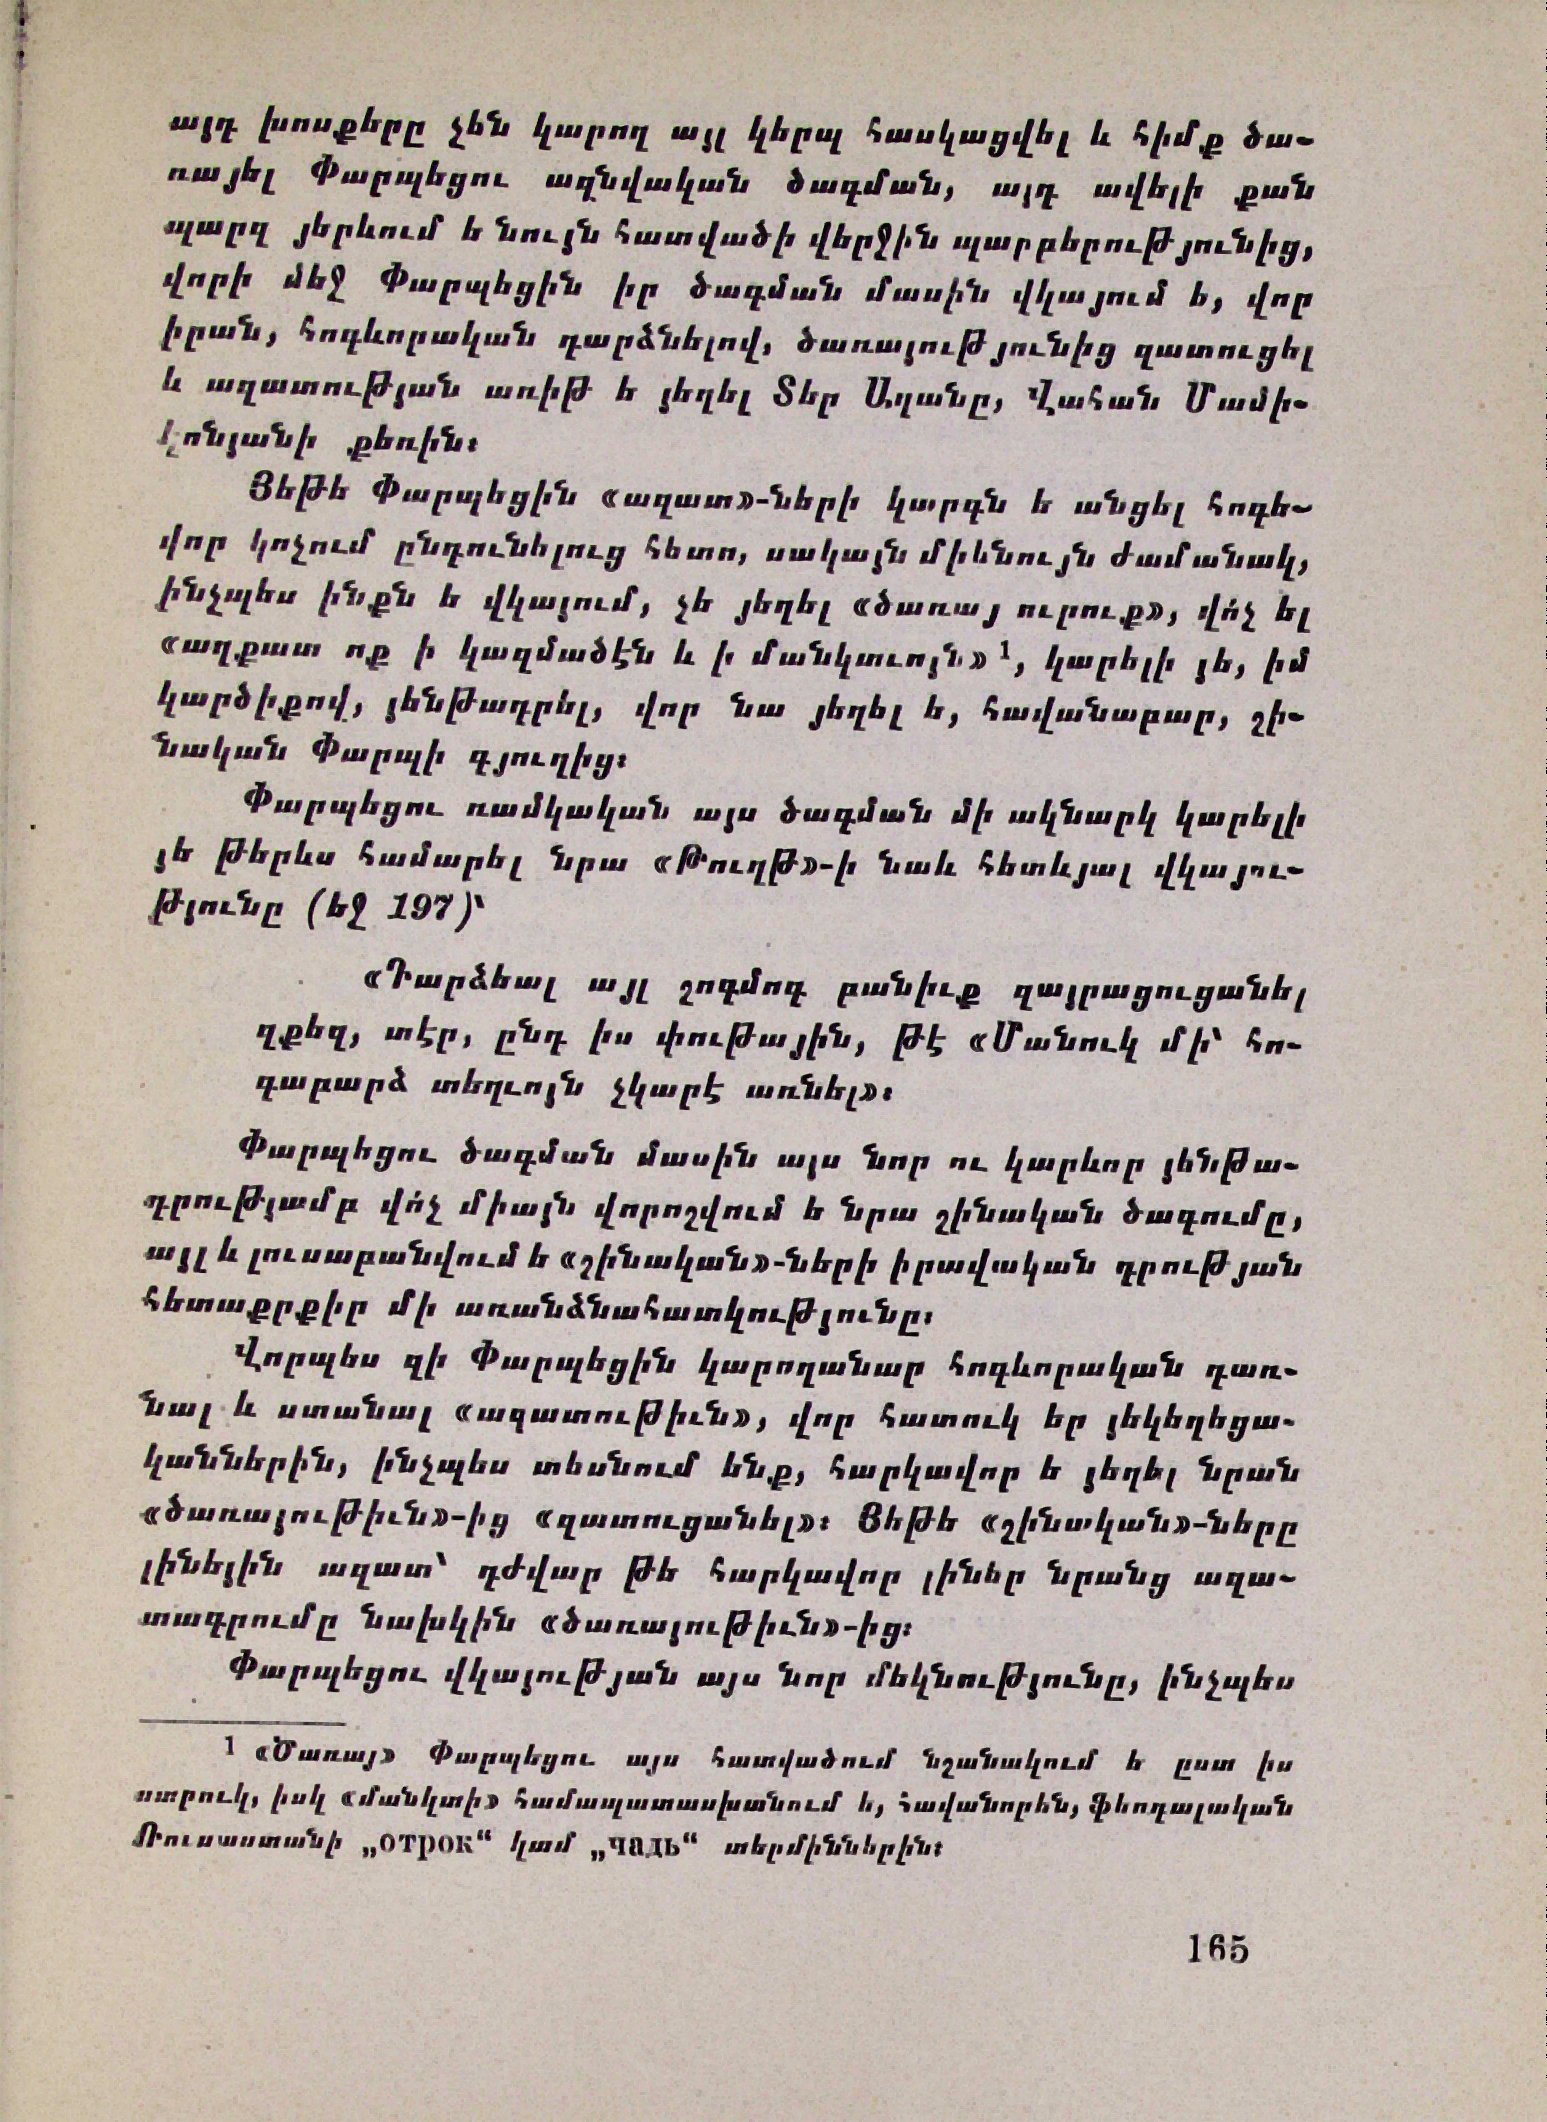 այդ խոսքերը չեն կարող այլ կերպ հասկացվել և հիմք ծա-
ռայել Փարպեցու ազնվական ծագման, այդ ավելի քան
պարզ յերևում ե նույն հատվածի վերջին պարբերությունից,
վորի մեջ Փարպեցին իր ծագման մասին վկայում ե, վոր
իրան, հոգևորական դարձնելով, ծառայությունից զատուցել
և ազատության առիթ ե յեղել Տեր Աղանը, Վահան Մամի-
կոնյանի քեռին։
Յեթե Փարպեցին «ազատ»-ների կարգն ե անցել հոգե-
վոր կոչում ընդունելուց հետո, սակայն միևնույն ժամանակ,
ինչպես ինքն ե վկայում, չե յեղել «ծառայ ուրուք», վո՛չ ել
«աղքատ ոք ի կազմածէն և ի մանկտւոյն»¹, կարելի յե, իմ
կարծիքով, յենթադրել, վոր նա յեղել ե, հավանաբար, շի-
նական Փարպի գյուղից։
Փարպեցու ռամկական այս ծագման մի ակնարկ կարելի
յե թերևս համարել նրա «Թուղթ»-ի նաև հետևյալ վկայու-
թյունը (եջ 197)՝
«Դարձեալ այլ շոգմոգ բանիւք զայրացուցանել
զքեզ, տէր, ընդ իս փութային, թէ «Մանուկ մի՝ հո-
գաբարձ տեղւոյն չկարէ առնել»։
Փարպեցու ծագման մասին այս նոր ու կարևոր յենթա-
դրությամբ վո՛չ միայն վորոշվում ե նրա շինական ծագումը,
այլ և լուսաբանվում ե «շինական»-ների իրավական դրության
հետաքրքիր մի առանձնահատկությունը։
Վորպես զի Փարպեցին կարողանար հոգևորական դառ-
նալ և ստանալ «ազատութիւն», վոր հատուկ եր յեկեղեցա-
կաններին, ինչպես տեսնում ենք, հարկավոր ե յեղել նրան
«ծառայութիւն»-ից «զատուցանել»։ Յեթե «շինական»-ները
լինեյին ազատ՝ դժվար թե հարկավոր լիներ նրանց ազա-
տագրումը նախկին «ծառայութիւն»-ից։
Փարպեցու վկայության այս նոր մեկնությունը, ինչպես
¹ «Ծառայ» Փարպեցու այս հատվածում նշանակում ե ըստ իս
ստրուկ, իսկ «մանկտի» համապատասխանում ե, հավանորեն, ֆեոդալական
Ռուսաստանի „отрок“ կամ „чадь“ տերմիններին։
165